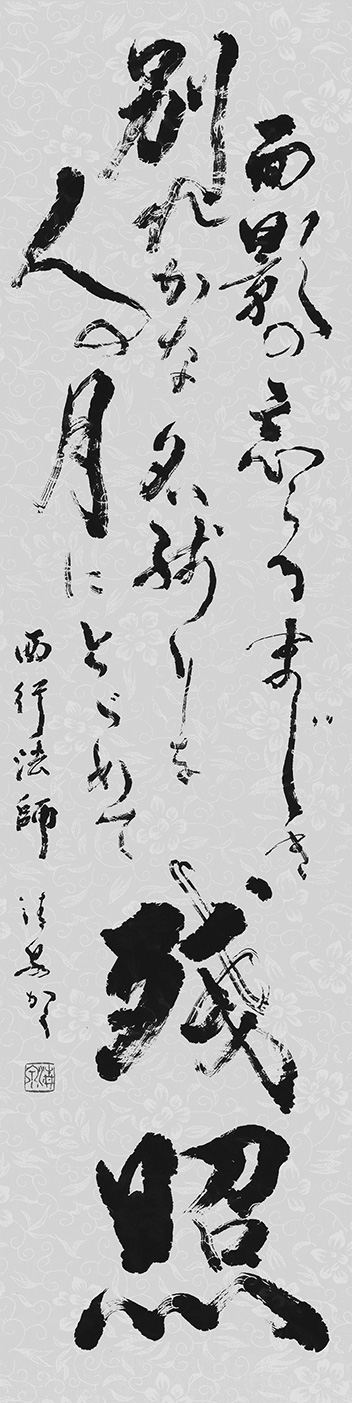 面影の忘らるまじき
別れかな名残りを
人の月にとどめて
残照
西行法師 かく